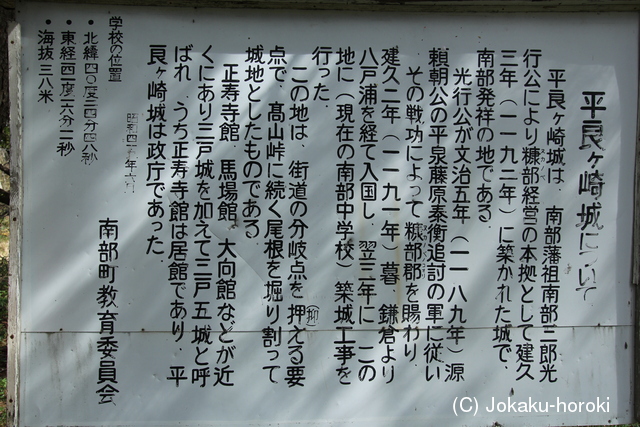 平良ヶ崎城について
平良ヶ崎城は、南部藩祖南部三郎光
行公により糠部経営の本拠として建久
三年(一一九二年)に築かれた城で、
南部発祥の地である。
光行公が文治五年(一一八九年)源
頼朝公の平泉藤原泰衡追討の軍に従い
その戦功によって糠部郡を賜わり、
建久二年(一一九一年)暮、鎌倉より
八戸浦を経て入国し、翌三年に、この
地に(現在の南部中学校)築城工事を
行った。
この地は、街道の分岐点を押える要(抑)
点で、髙山峠に続く尾根を堀り割って
城地としたものである。
正寿寺館、馬場館、大向館などが近
くにあり三戸城を加えて三戸五城と呼
ばれ、うち正寿寺館は居館であり、平
良ヶ崎城は政庁であった。
学校の位置
・北緯四〇度二四分四八秒
・東経一四一度一六分一一秒
・海抜三八米
南部町教育委員会
(C) Jokaku-horoki